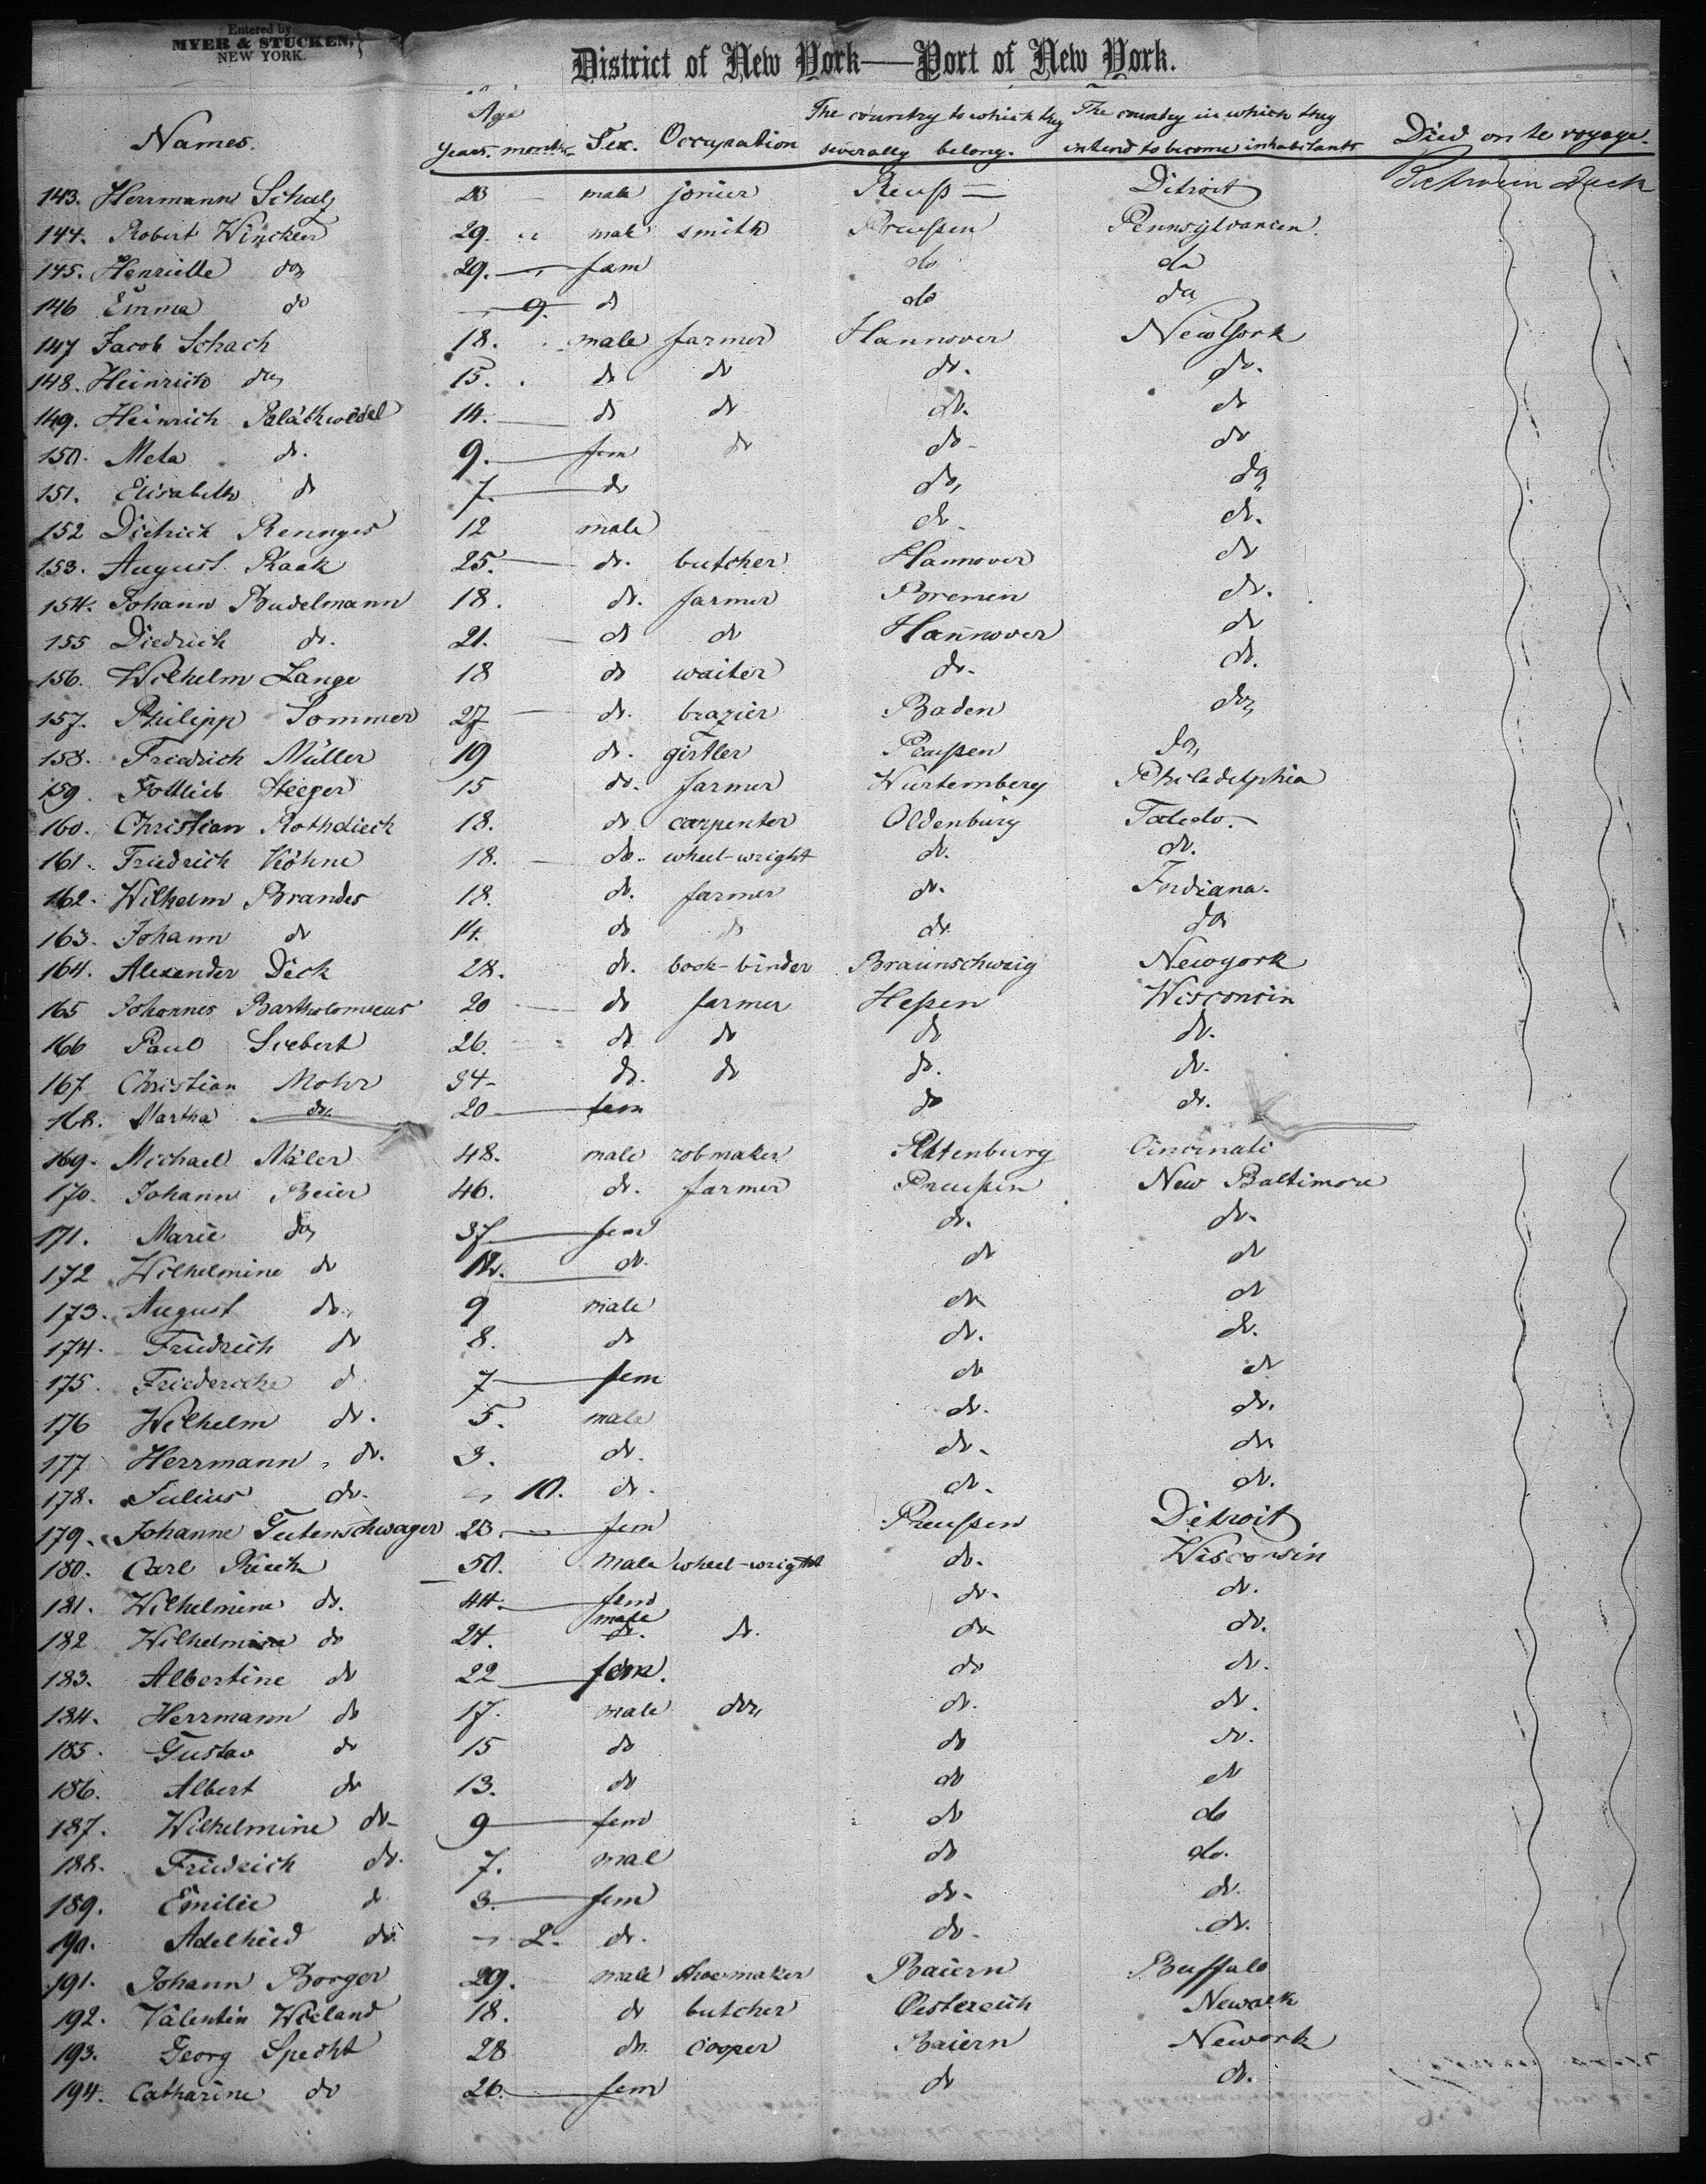 Entered by
MYER & STUCKEN,
NEW YORK.
District of New York—Port of New York.
Names. Age Years. months. Sex. Occupation The country to which they severally belong. The country in which they intend to become inhabitants Died on the voyage.
143. Herrmann Schulz 23 — male jonier Reuß = Detroit Between Deck
144. Robert Winckler 29. " male smith Preußen Pennsylvanien.
145. Henriette do 29. — fem do do
146 Emma do — 9. do do do
147 Jacob Schach 18. male farmer Hannover New York
148. Heinrich do 15. do do do. do.
149. Heinrich 14. — do do do. do
150. Meta do. 9. — fem do do - do
151. Elisabeth do 7. — do do, do
152 Dietrich Rennges 12 male do. do.
153. August Raak 25. — do. butcher Hannover do
154. Johann Budelmann 18. do. farmer Bremen do.
155 Diedrich do. 21. — do do Hannover do
156. Wilhelm Lange 18 do waiter do. do.
157. Philipp Sommer 27 — do. brazier Baden do
158. Friedrich Müller 19 do. girtler Preußen do
159. Gottlieb Steeger 15 do. farmer Würtemberg Philadelphia
160. Christian Rothdieck 18. do carpenter Oldenburg Toledo. -
161. Friedrich Köhne 18. — do. wheel-wright do. do.
162. Wilhelm Brandes 18. do. farmer do. Indiana.
163. Johann do 14. do do do. do
164. Alexander Dick 28. do. book-binder Braunschweig Newyork
165 Johannes Bartholomaeus 20 — do farmer Heßen Wisconsin
166 Paul Siebert 26. do do do do.
167 Christian Mohr 34 - do. do do. do.
168. Martha do. 20 — fem do do.
169. Michael Mäler 48. male Altenburg Cincinati
170. Johann Beier 46. do. farmer Preußen New Baltimore
171. Marie do 37 — fem do. do.
172 Wilhelmine do — do. do do
173. August do. 9 male do do
174. Friedrich do 8. do do. do.
175. Friedericke d 7 — fem do do
176 Wilhelm do. 5. male do. do.
177 Herrmann, do. 3. do. do. do
178. Julius do. " 10. do. do. do.
179. Johanne Gutenschwager 23. — fem Preußen Detroit
180. Carl Rieck 50. male wheel-wright do. Wisconsin
181. Wilhelmine do. 44. — fem do. do.
182 Wilhelm do 24. male do. do do.
183. Albertine do 22 — fem. do do.
184. Herrmann do 17. male do, do. do.
185. Gustav do 15 do do do.
186. Albert do 13. do do do
187. Wilhelmine do - 9 — fem do do
188. Friedrich do. 7. mal do do.
189. Emilie do 3. — fem do. do.
190. Adelheid do. " 2. do. do. do.
191. Johann Borger 29. male shoemaker Baiern Buffalo
192. Valentin Wieland 18. do butcher Oestereich Newark
193. Georg Specht 28 do. cooper Baiern Nework
194. Catharine do 26. — fem do do.